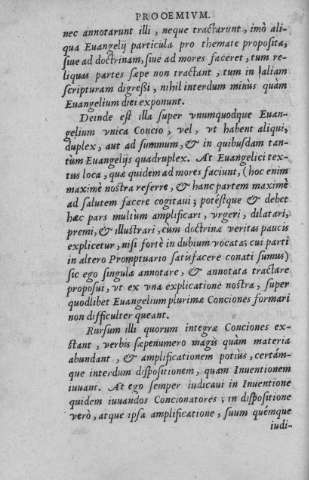 PROOEMIVM.
nec annotarunt illi, neque tractarunt, imò ali-
qua Euangelij particula pro themate proposita,
siue ad doctrinam, siue ad mores faceret, tum re-
liquas partes sæpe non tractant, tum in |aliam
scripturam digreßi, nihil interdum minùs quàm
Euangelium diei exponunt.
Deinde est illa super vnumquodque Euan-
gelium vnica Concio, vel, vt habent aliqui,
duplex, aut ad summum, & in quibusdam tan-
tùm Euangelijs quadruplex. At Euangelici tex-
tus loca, quæ quidem ad mores faciunt, (hoc enim
maximè nostra referre, & hanc partem maximè
ad salutem facere cogitaui; potéstque & debet
hæc pars multùm amplificari, vrgeri, dilatari,
premi, & illustrari, cùm doctrinæ veritas paucis
explicetur, nisi fortè in dubium vocata; cui parti
in altero Promptuario satisfacere conati sumus)
sic ego singula annotare, & annotata tractare
proposui, vt ex vna explicatione nostra, super
quodlibet Euangelium plurimæ Conciones formari
non difficulter queant.
Rursum illi quorum integræ Conciones ex-
stant, verbis sæpenumero magis quàm materia
abundant, & amplificationem potiùs, certám-
que interdum dispositionem, quàm Inuentionem
iuuant. At ego semper iudicaui in Inuentione
quidem iuuandos Concionatores; in dispositione
verò, atque ipsa amplificatione, suum quémque
iudi-